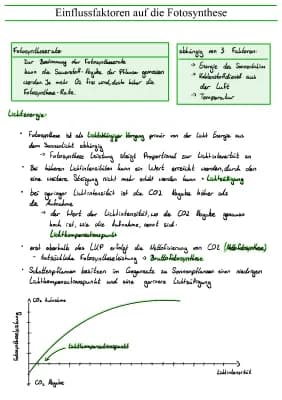 Einflussfaktoren auf die Fotosynthese
Fotosyntheserate:
Zur Bestimmung der Fotosyntheserate
kann die Sauerstoff-Abgabe der Pflanzen gemessen
werden. Je mehr O₂ frei wird, desto höher die
Fotosynthese-Rate.
abhängig von 3 Faktoren:
→ Energie des Sonnenlichts
→ Kohlenstoffdioxid aus
der Luft
→ Temperatur
Lichtenergie:
• Fotosynthese ist als lichtabhängiger Vorgang primär von der Licht Energie aus
dem Sonnenlicht abhängig
→ Fotosynthese Leistung steigt Proportional zur Lichtintensität an
• Bei höheren Lichtintensitäten kann ein Wert erreicht werden, durch den
eine weitere Steigung nicht mehr erhöht werden kann - Lichtsättigung
• bei geringer Lichtintensität ist die CO2 Abgabe höher als
die Aufnahme
→ der Wert der Lichtintensität, wo die CO2 Abgabe genauso
hoch ist, wie die Aufnahme, nennt sich:
Lichtkompensationspunkt
• erst oberhalb des LKP erfolgt die Nettofixierung von CO2
- tatsächliche Fotosyntheseleistung → Bruttofotosynthese
• Schattenpflanzen besitzen im Gegensatz zu Sonnenpflanzen einen niedrigen
Lichtkompensationspunkt und eine geringere Lichtsättigung
CO₂ Aufnahme
Fotosyntheseleistung
Lichtkompensationspunkt
Lichtintensität
CO₂ Abgabe